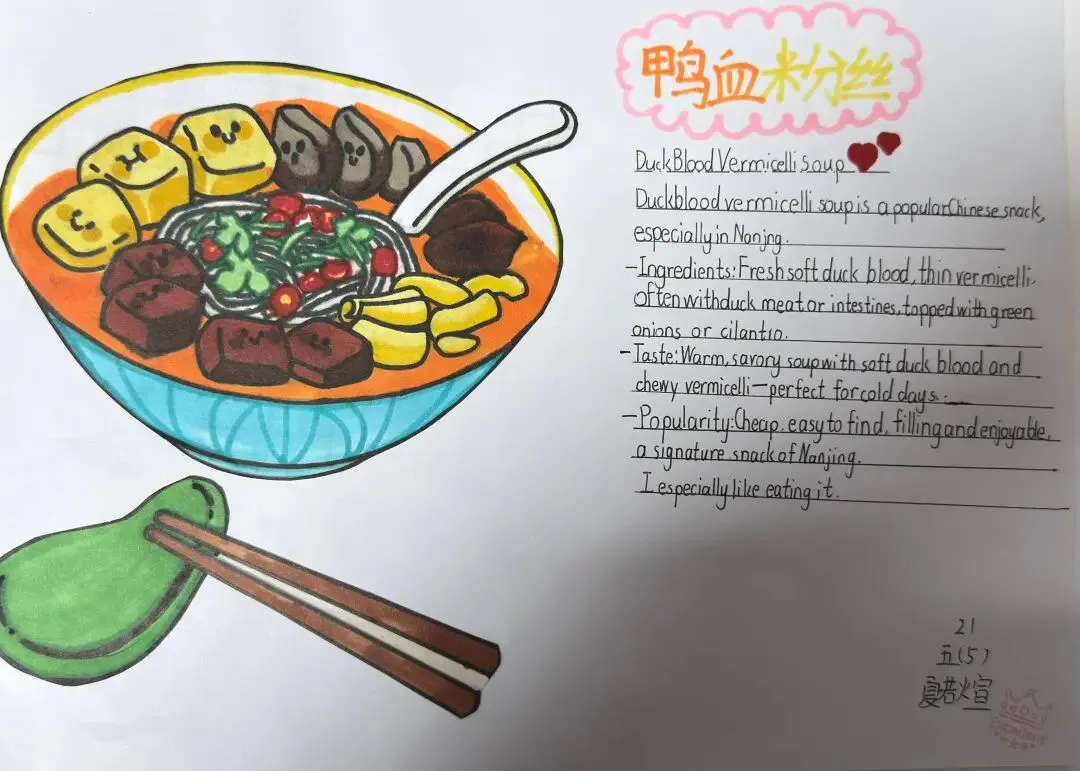 鸭血粉丝
Duck Blood Vermicelli soup
Duckblood vermicelli soup is a popular Chinese snack,
especially in Nanjng.
-Ingredients: Fresh soft duck blood, thin vermicelli,
often with duck meat or intestines, topped with green
onions or cilantro.
-Taste: Warm, savory soup with soft duck blood and
chewy vermicelli—perfect for cold days.
-Popularity: Cheap, easy to find, filling and enjoyable,
a signature snack of Nanjing.
I especially like eating it.
21
五(5)
夏若煊
Excellent